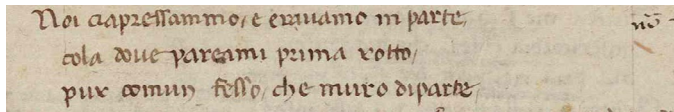 Noi ciapressammo, e eravamo in parte,
cola dove pareami prima rotto,
pur comun fesso, che muro diparte,